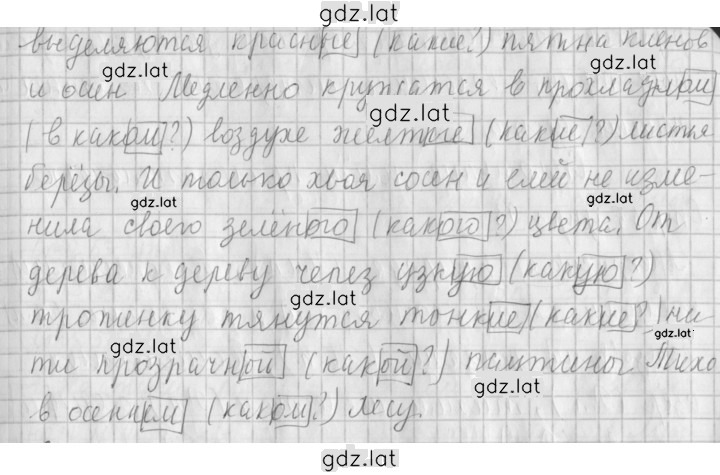 gdz.lat
выделяются красные (какие?) пятна кленов
gdz.lat gdz.lat
и осин. Медленно кружатся в прохладном
gdz.lat
(в каком?) воздухе желтые (какие?) листья
берёзы. И только хвоя сосен и елей не изме-
gdz.lat gdz.lat
нила своего зелёного (какого?) цвета. От
дерева к дереву через узкую (какую?)
gdz.lat
тропинку тянутся тонкие (какие?) ни-
gdz.lat gdz.lat
ти прозрачной (какой?) паутины. Тихо
gdz.lat
в осеннем (каком?) лесу.
gdz.lat